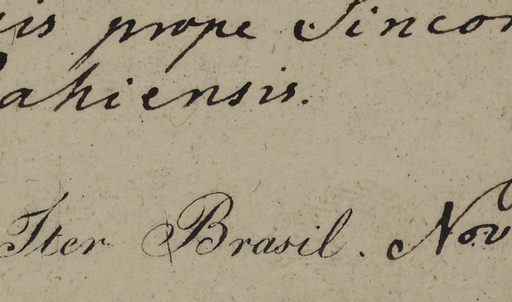 is prope Sincor
ahiensis.
Iter Brasil. Nov